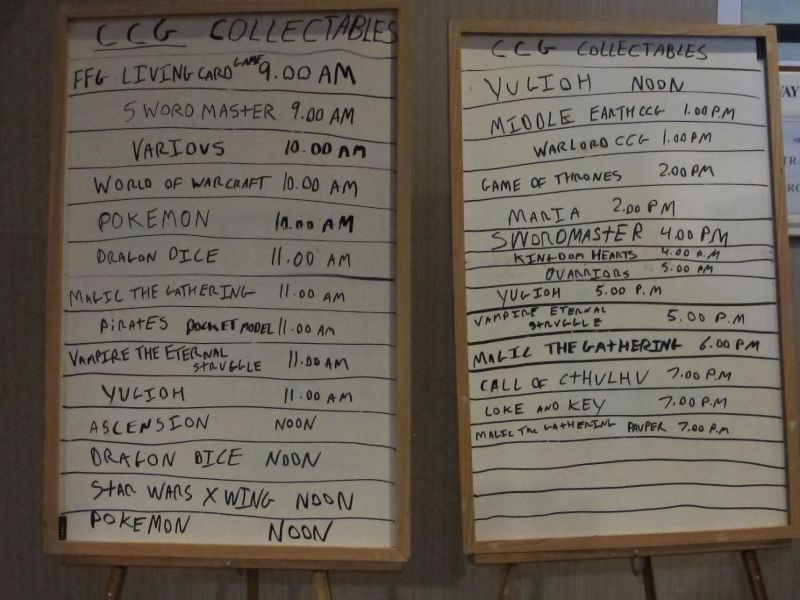 CCG COLLECTABLES
FFG LIVING CARD GAME 9.00 AM
SWORD MASTER 9.00 AM
VARIOUS 10.00 AM
WORLD OF WARCRAFT 10.00 AM
POKEMON 10.00 AM
DRAGON DICE 11.00 AM
MAGIC THE GATHERING 11.00 AM
PIRATES POCKET MODEL 11.00 AM
VAMPIRE THE ETERNAL STRUGGLE 11.00 AM
YUGIOH 11.00 AM
ASCENSION NOON
DRAGON DICE NOON
STAR WARS X WING NOON
POKEMON NOON
CCG COLLECTABLES
YUGIOH NOON
MIDDLE EARTH CCG 1.00 P.M
WARLORD CCG 1.00 P.M
GAME OF THRONES 2.00 PM
MARIA 2.00 PM
SWORDMASTER 4.00 P.M
KINGDOM HEARTS 4.00 A.M
OVARRIORS 5.00 AM
YUGIOH 5.00 P.M
VAMPIRE ETERNAL STRUGGLE 5.00 P.M
MAGIC THE GATHERING 6.00 P.M
CALL OF CTHULHU 7.00 P.M
LOKE AND KEY 7.00 P.M
MAGIC THE GATHERING PAUPER 7.00 P.M